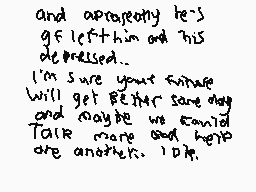 and apraseatly he's
gf left him and his
depressed..
I'm sure your future
will get Better some day
and maybe we could
Talk more and help
one another. idk.